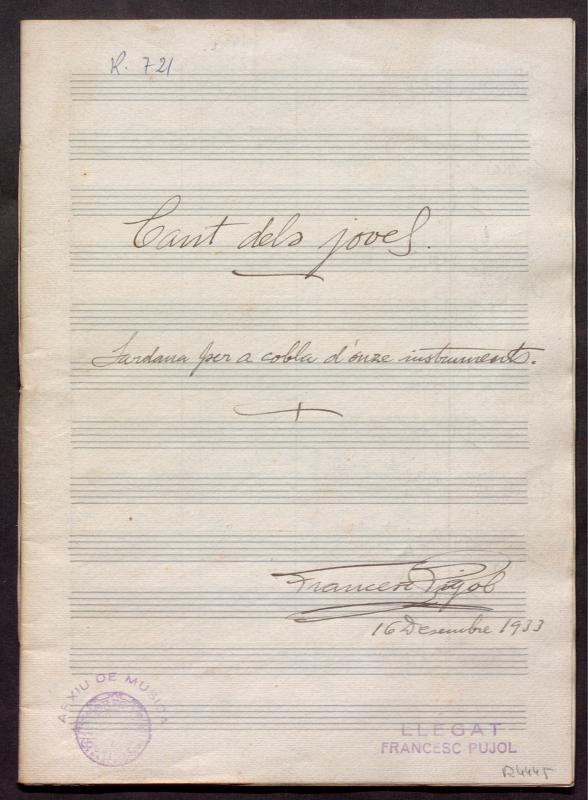 R. 721
Cant dels joves.
Sardana per a cobla d'ónze instruments.
Francesc Pujol
16 Desembre 1933
ARXIU DE MUSICA
LLEGAT
FRANCESC PUJOL
R4445